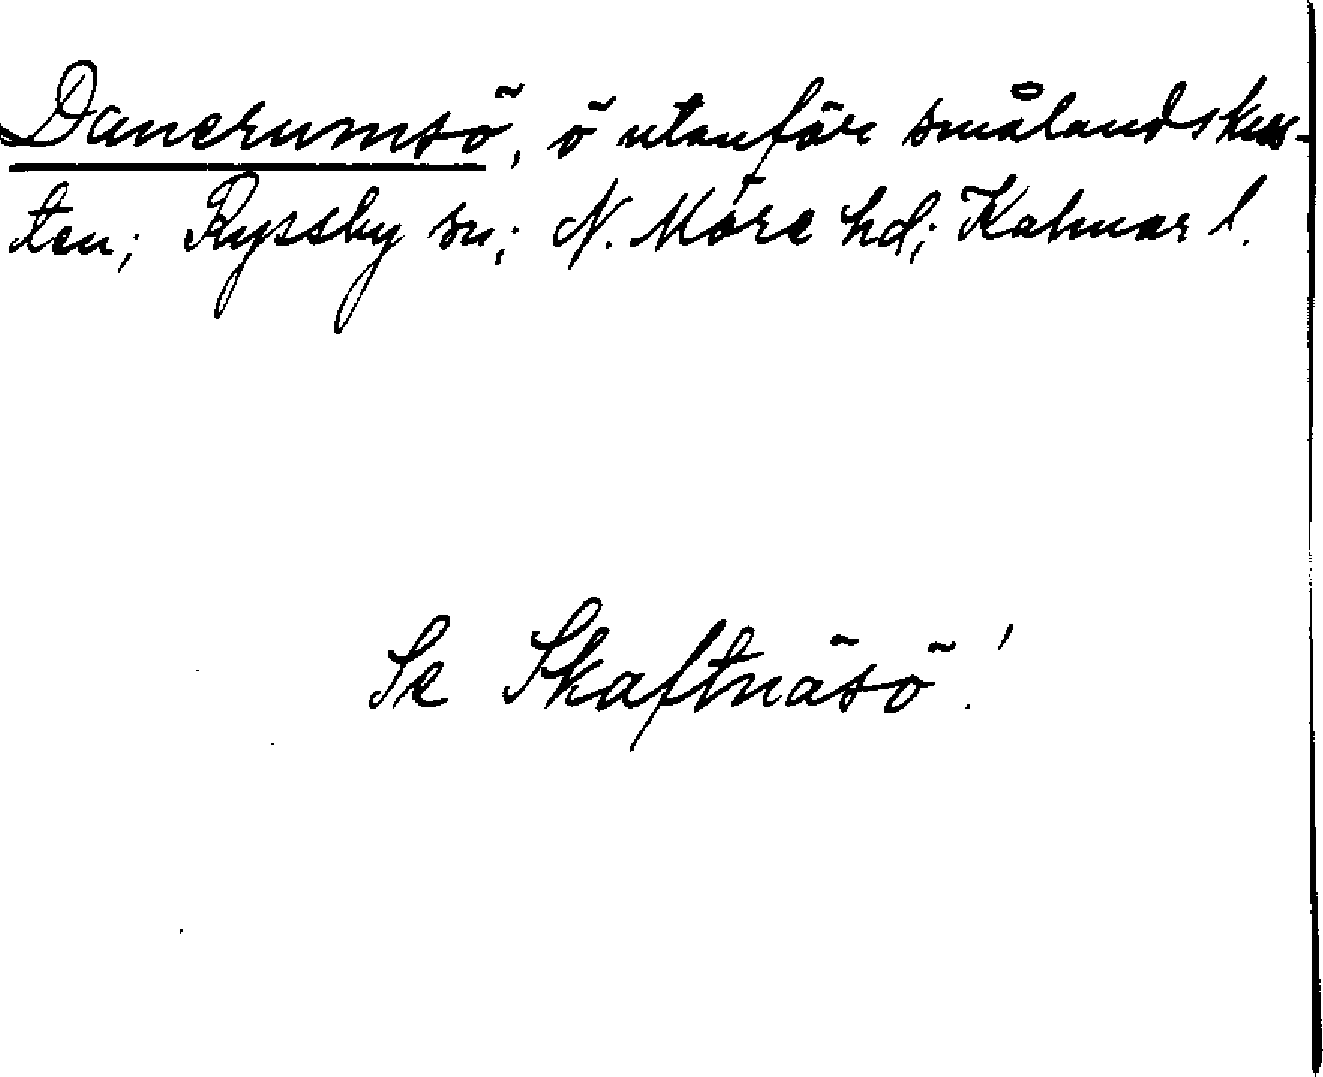 Danerumsö, ö utanför smålandskus-
ten; Ryssby sn; N. Möre hd; Kalmar l.
Se Skaftnäsö!